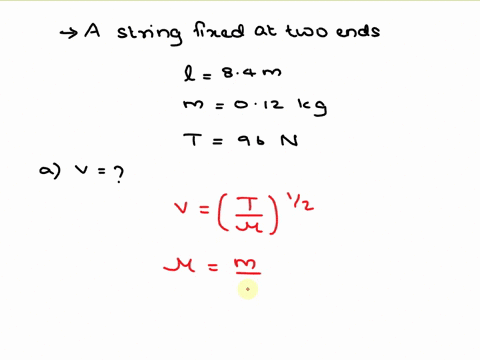 → A string fixed at two ends
l = 8.4 m
m = 0.12 kg
T = 96 N
a) v = ?
v = (T/μ)^1/2
μ = m/